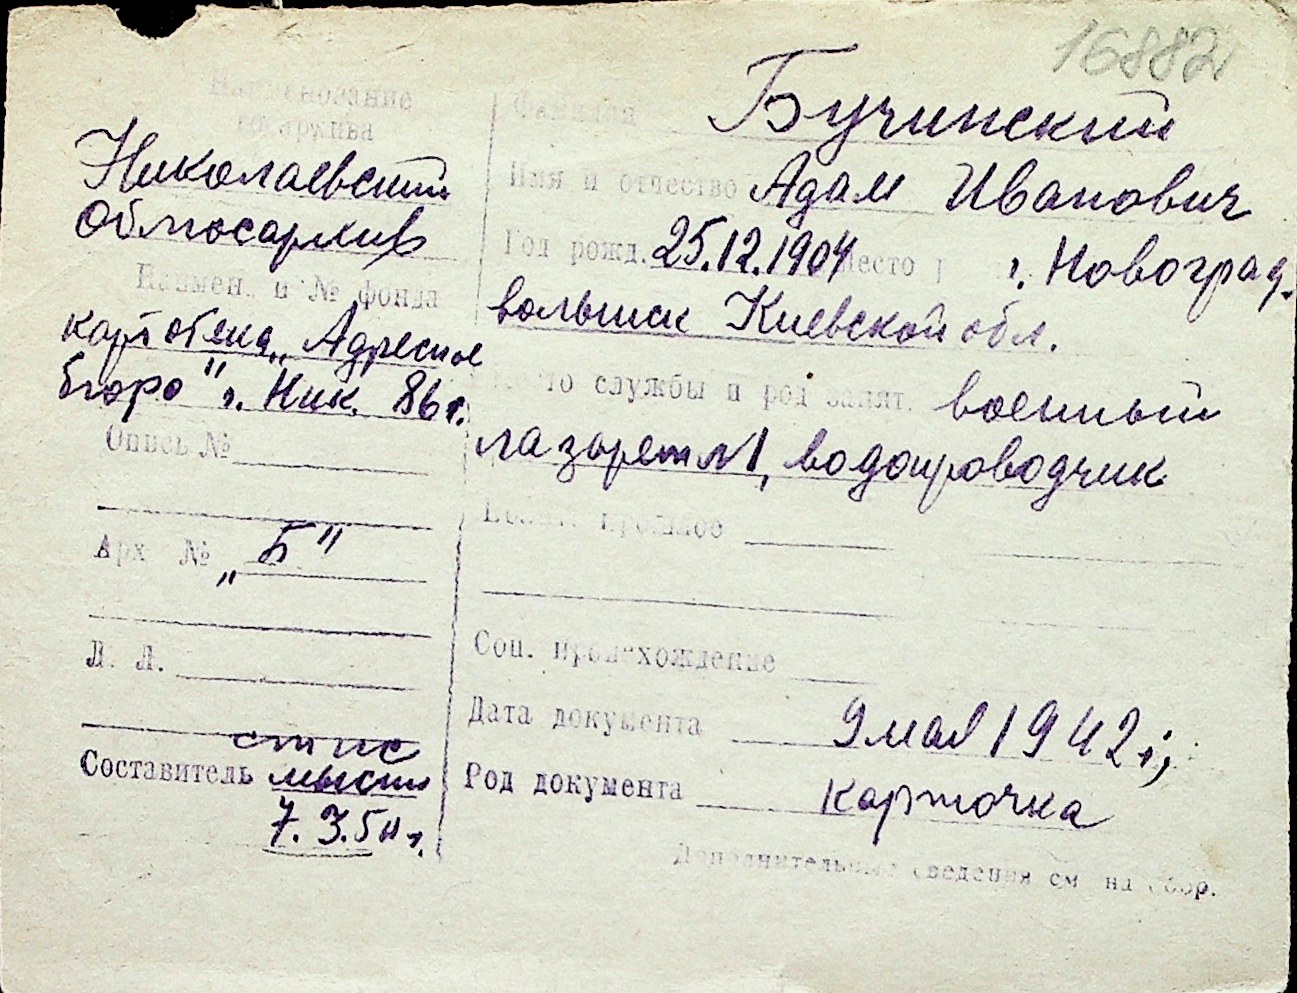 16882
Наименование
госархива
Николаевский
облгосархив
Наимен. и № фонда
картотека „Адресное
бюро" г. Ник. 86 г.
Опись №
Арх №
„Б"
Л. Л.
Составитель
7. 3. 5
Фамилия Бучинский
Имя и отчество Адам Иванович
Год рожд. 25.12.1904 Место г. Новоград.
волынск Киевской обл.
Место службы и род занят. военный
лазарет №1, водопроводчик
прошлое
Соц. происхождение
Дата документа 9 мая 1942 г.;
Род документа карточка
Дополнительные сведения см на обор.